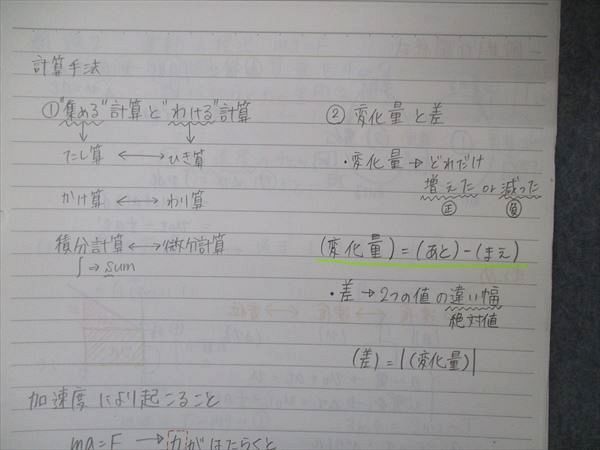 計算手法
①"集める"計算と"わける"計算
たし算 ⟷ ひき算
かけ算 ⟷ わり算
積分計算⟷微分計算
∫⇒sum
② 変化量と差
・変化量→どれだけ
増えた or 減った
正 負
(変化量)=(あと)-(まえ)
・差→2つの値の違い幅
絶対値
(差)=|(変化量)|
加速度により起こること
ma=F →力がはたらくと